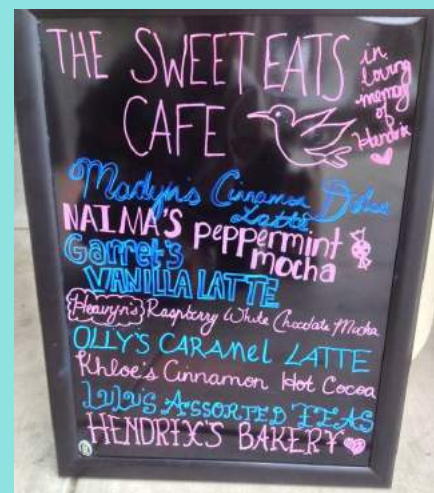 THE SWEET EATS
CAFE
in
loving
memory
of
Hendrix
Madyn's Cinnamon Dolce
Latte
NAIMA'S peppermint
mocha
Garret's
VANILLA LATTE
Heavyn's Raspberry White Chocolate Mocha
OLLY'S CARAMEL LATTE
Khloe's Cinnamon Hot Cocoa
LuLu's ASSORTED TEAS
HENDRIX'S BAKERY